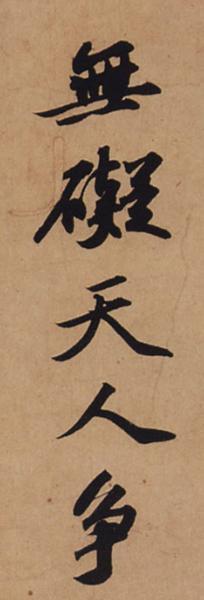 無礙天人争